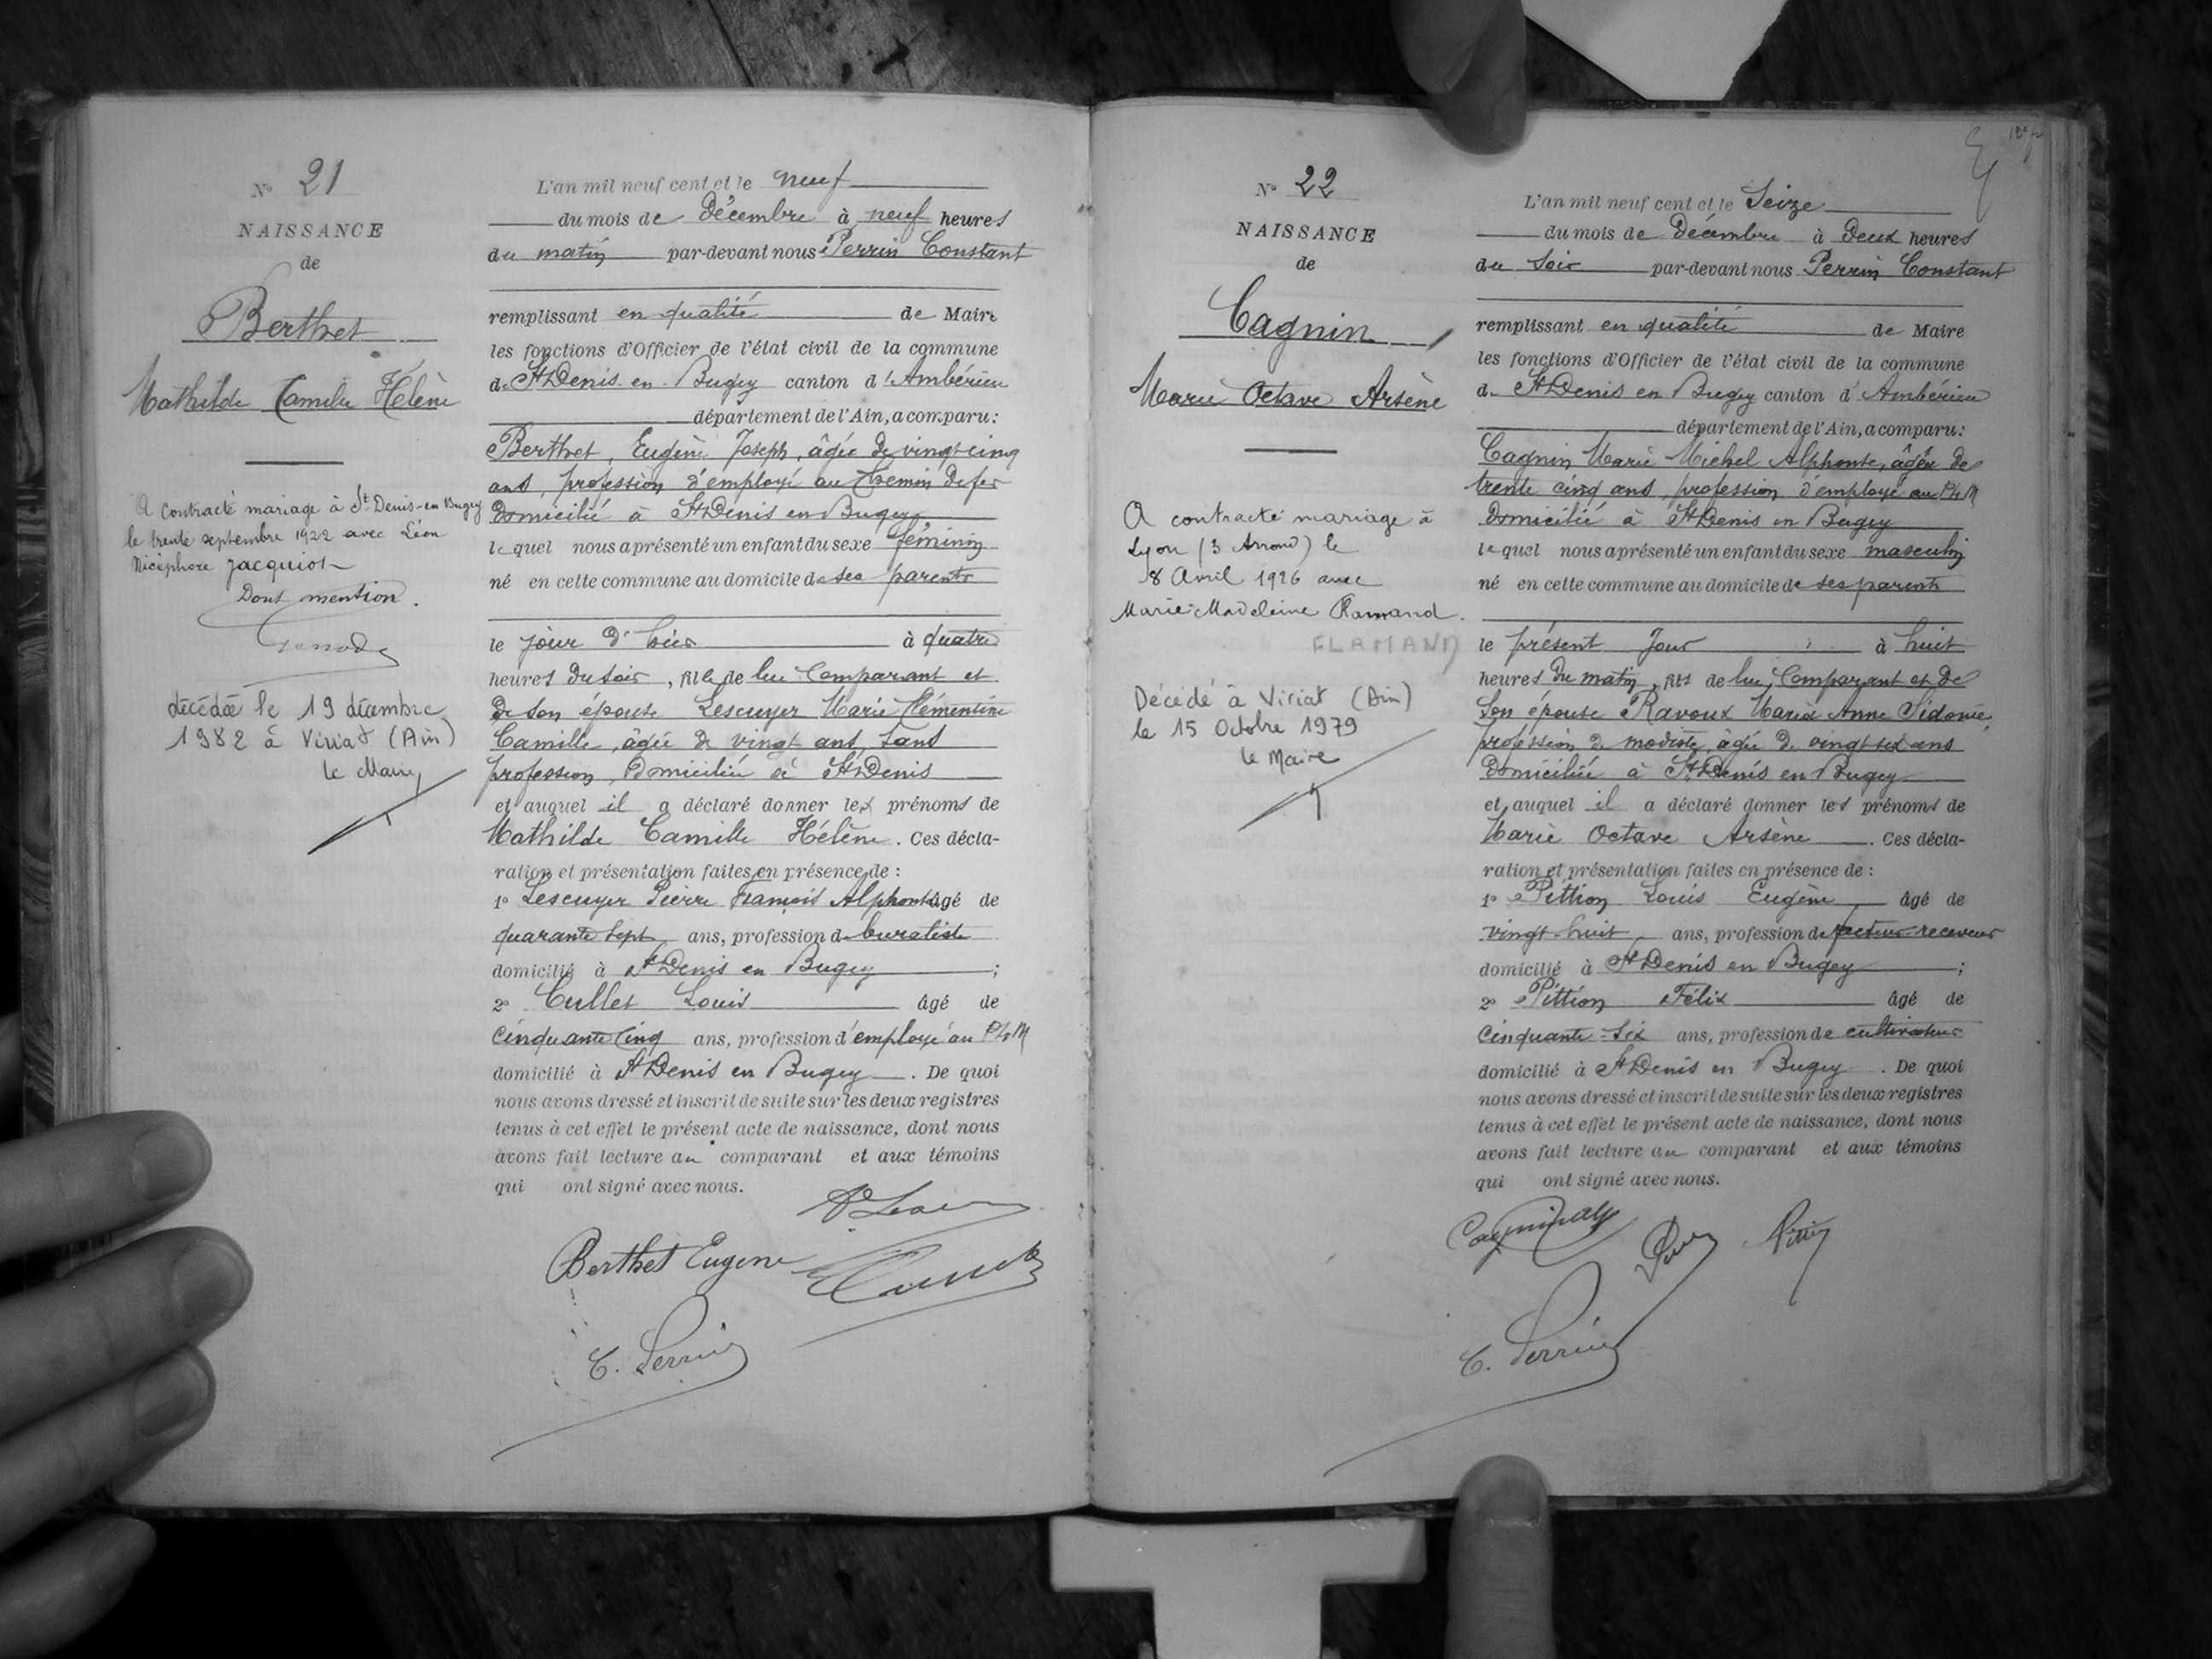 N° 21
NAISSANCE
de
Berthet
Mathilde Camille Hélène
A contracté mariage à St Denis-en Bugey
le trente septembre 1922 avec Léon
Nicéphore Jacquiot
Dont mention.
décédée le 19 décembre
1982 à Viriat (Ain)
le Maire
L'an mil neuf cent et le neuf
du mois de décembre à neuf heures
du matin par-devant nous Perrin Constant
remplissant en qualité de Maire
les fonctions d'Officier de l'état civil de la commune
de St Denis en Bugey canton d'Ambérieu
département de l'Ain, a comparu:
Berthet, Eugène Joseph, âgée de vingt cinq
ans, profession d'employé au Chemin de fer
domicilié à St Denis en Bugey,
lequel nous a présenté un enfant du sexe féminin
né en cette commune au domicile de ses parents
le jour d'hier à quatre
heures du soir, fille de lui Comparant et
de son épouse Lescuyer Marie Clémentine
Camille, âgée de vingt ans, sans
profession, domiciliée à St Denis
et auquel il a déclaré donner les prénoms de
Mathilde Camille Hélène. Ces décla-
ration et présentation faites en présence de :
1° Lescuyer Pierre François Alphonse âgé de
quarante sept ans, profession de buraliste
domicilié à St Denis en Bugey ;
2° Cullet Louis âgé de
cinquante cinq ans, profession d'employé au PLM
domicilié à St Denis en Bugey. De quoi
nous avons dressé et inscrit de suite sur les deux registres
tenus à cet effet le présent acte de naissance, dont nous
avons fait lecture au comparant et aux témoins
qui ont signé avec nous.
Berthet Eugene
C. Perrin
N° 22
NAISSANCE
de
Cagnin
Marie Octave Arsène
A contracté mariage à
Lyon (3 Arrond) le
8 Avril 1926 avec
Marie-Madeleine Flamand.
FLAMAND
Décédé à Viriat (Ain)
le 15 Octobre 1979
le Maire
L'an mil neuf cent et le Seize
du mois de Décembre à deux heures
du soir par-devant nous Perrin Constant
remplissant en qualité de Maire
les fonctions d'Officier de l'état civil de la commune
de St Denis en Bugey canton d'Ambérieu
département de l'Ain, a comparu:
Cagnin Marie Michel Alphonse, âgée de
trente cinq ans, profession d'employé au PLM
domicilié à St Denis en Bugey
lequel nous a présenté un enfant du sexe masculin
né en cette commune au domicile de ses parents
le présent jour à huit
heures du matin, fils de lui Comparant et de
son épouse Ravoux Maria Anne Sidonie,
profession de modiste, âgée de vingt six ans
domiciliée à St Denis en Bugey
et auquel il a déclaré donner les prénoms de
Marie Octave Arsène. Ces décla-
ration et présentation faites en présence de :
1° Pittion Louis Eugène âgé de
vingt-huit ans, profession de facteur-receveur
domicilié à St Denis en Bugey ;
2° Pittion Félix âgé de
cinquante-six ans, profession de cultivateur
domicilié à St Denis en Bugey. De quoi
nous avons dressé et inscrit de suite sur les deux registres
tenus à cet effet le présent acte de naissance, dont nous
avons fait lecture au comparant et aux témoins
qui ont signé avec nous.
C. Perrin